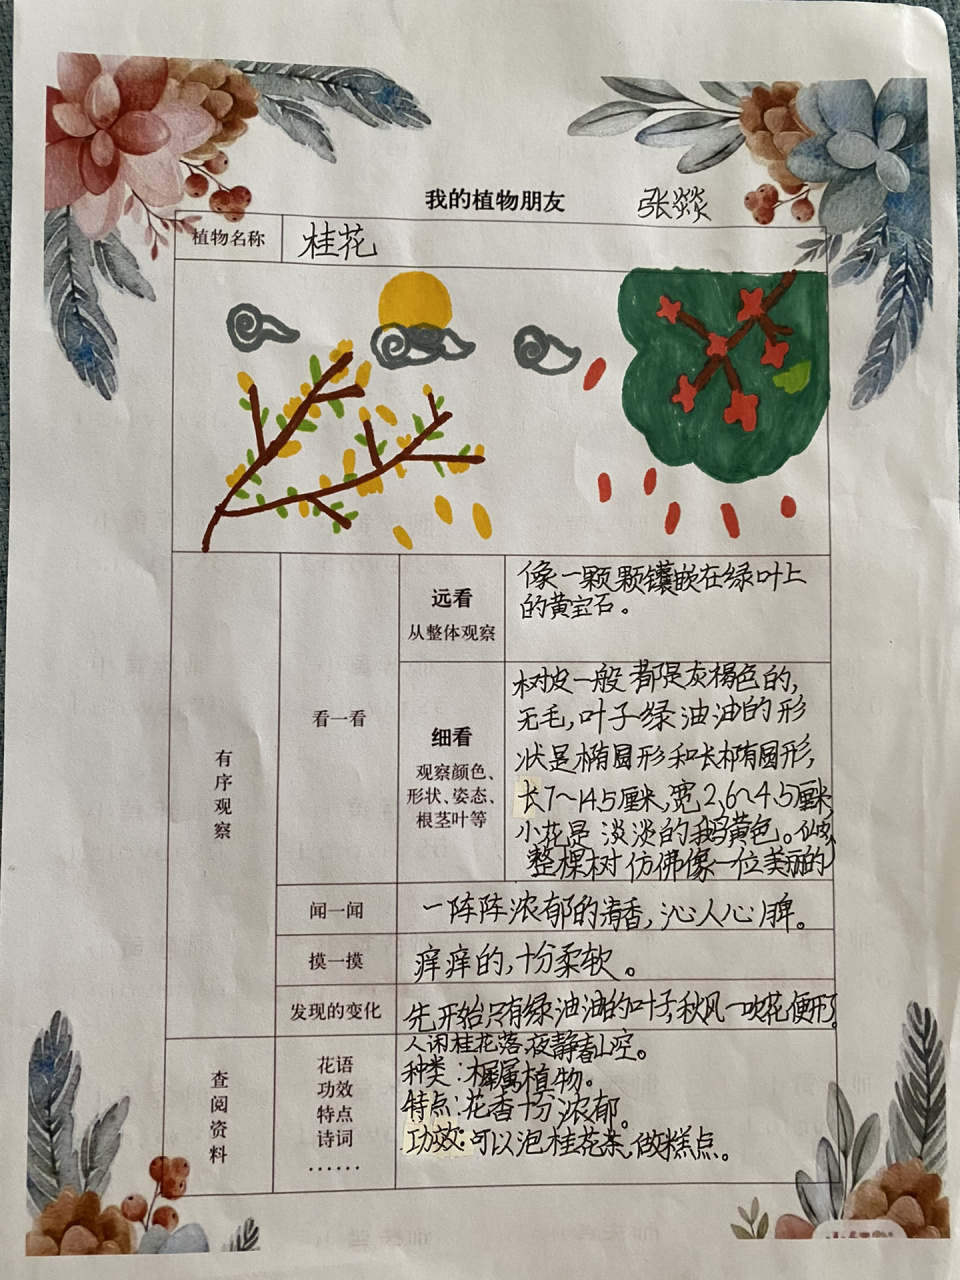 我的植物朋友
张燚
植物名称
桂花
有序观察
看一看
远看
从整体观察
像一颗颗镶嵌在绿叶上
的黄宝石。
细看
观察颜色、
形状、姿态、
根茎叶等
树皮一般都是灰褐色的,
无毛,叶子绿油油的形
状是椭圆形和长椭圆形,
长7~14.5厘米,宽2.6~4.5厘米,
小花是淡淡的鹅黄色。
整棵树仿佛像一位美丽的
闻一闻
一阵阵浓郁的清香,沁人心脾。
摸一摸
痒痒的,十分柔软。
发现的变化
先开始只有绿油油的叶子,秋风一吹花便
查阅资料
花语
功效
特点
诗词
……
人闲桂花落,夜静春山空。
种类:木犀属植物。
特点:花香十分浓郁。
功效:可以泡桂花茶,做糕点。